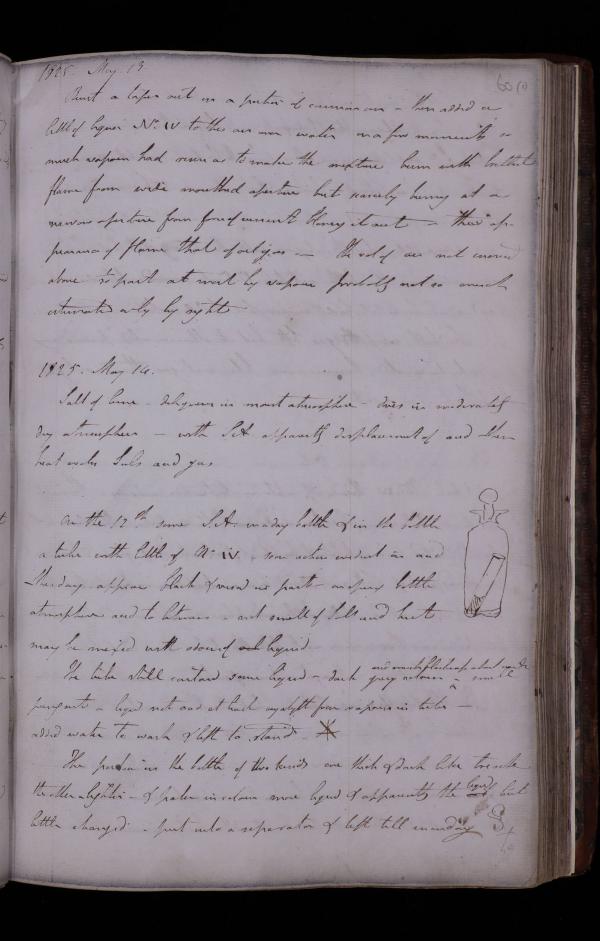 1825. May 13
60
Burnt a taper out in a portion of common air - then added a
little of liquor No IV to the air over water in a few moments so
much vapour had risen as to make the mixture burn with brilliant
flame from wide mouthed aperture but scarcely burning at a
narrow aperture from force of current blowing it out - the ap-
pearance of flame that of oil gas - the vol of air not increased
above part at most by vapour probably not so much
estimated only by sight
1825. May 14.
Salt of lime - deliquesces in moist atmosphere - dries in moderately
dry atmosphere - with S.A. apparently displacement of acid then
heat evolves Sul. and gas
On the 12th some S.A. in a dry bottle & in the bottle
a tube with little of No IV. some action evident in and
Thursday appears black & viscid in parts on opening bottle
atmosphere acid to litmus - not smell of Sul acid but
may be mixed with odour of liquid
The tube still contains some liquid - dark grey colour - small
pungent - liquid not acid at least only from vapours in tube -
added water to wash & left to stand
The portion in the bottle of two kinds one thick & dark like treacle
the other lighter - & paler in colour more liquid & apparently the liquid but
little changed - put into a separator & left till monday